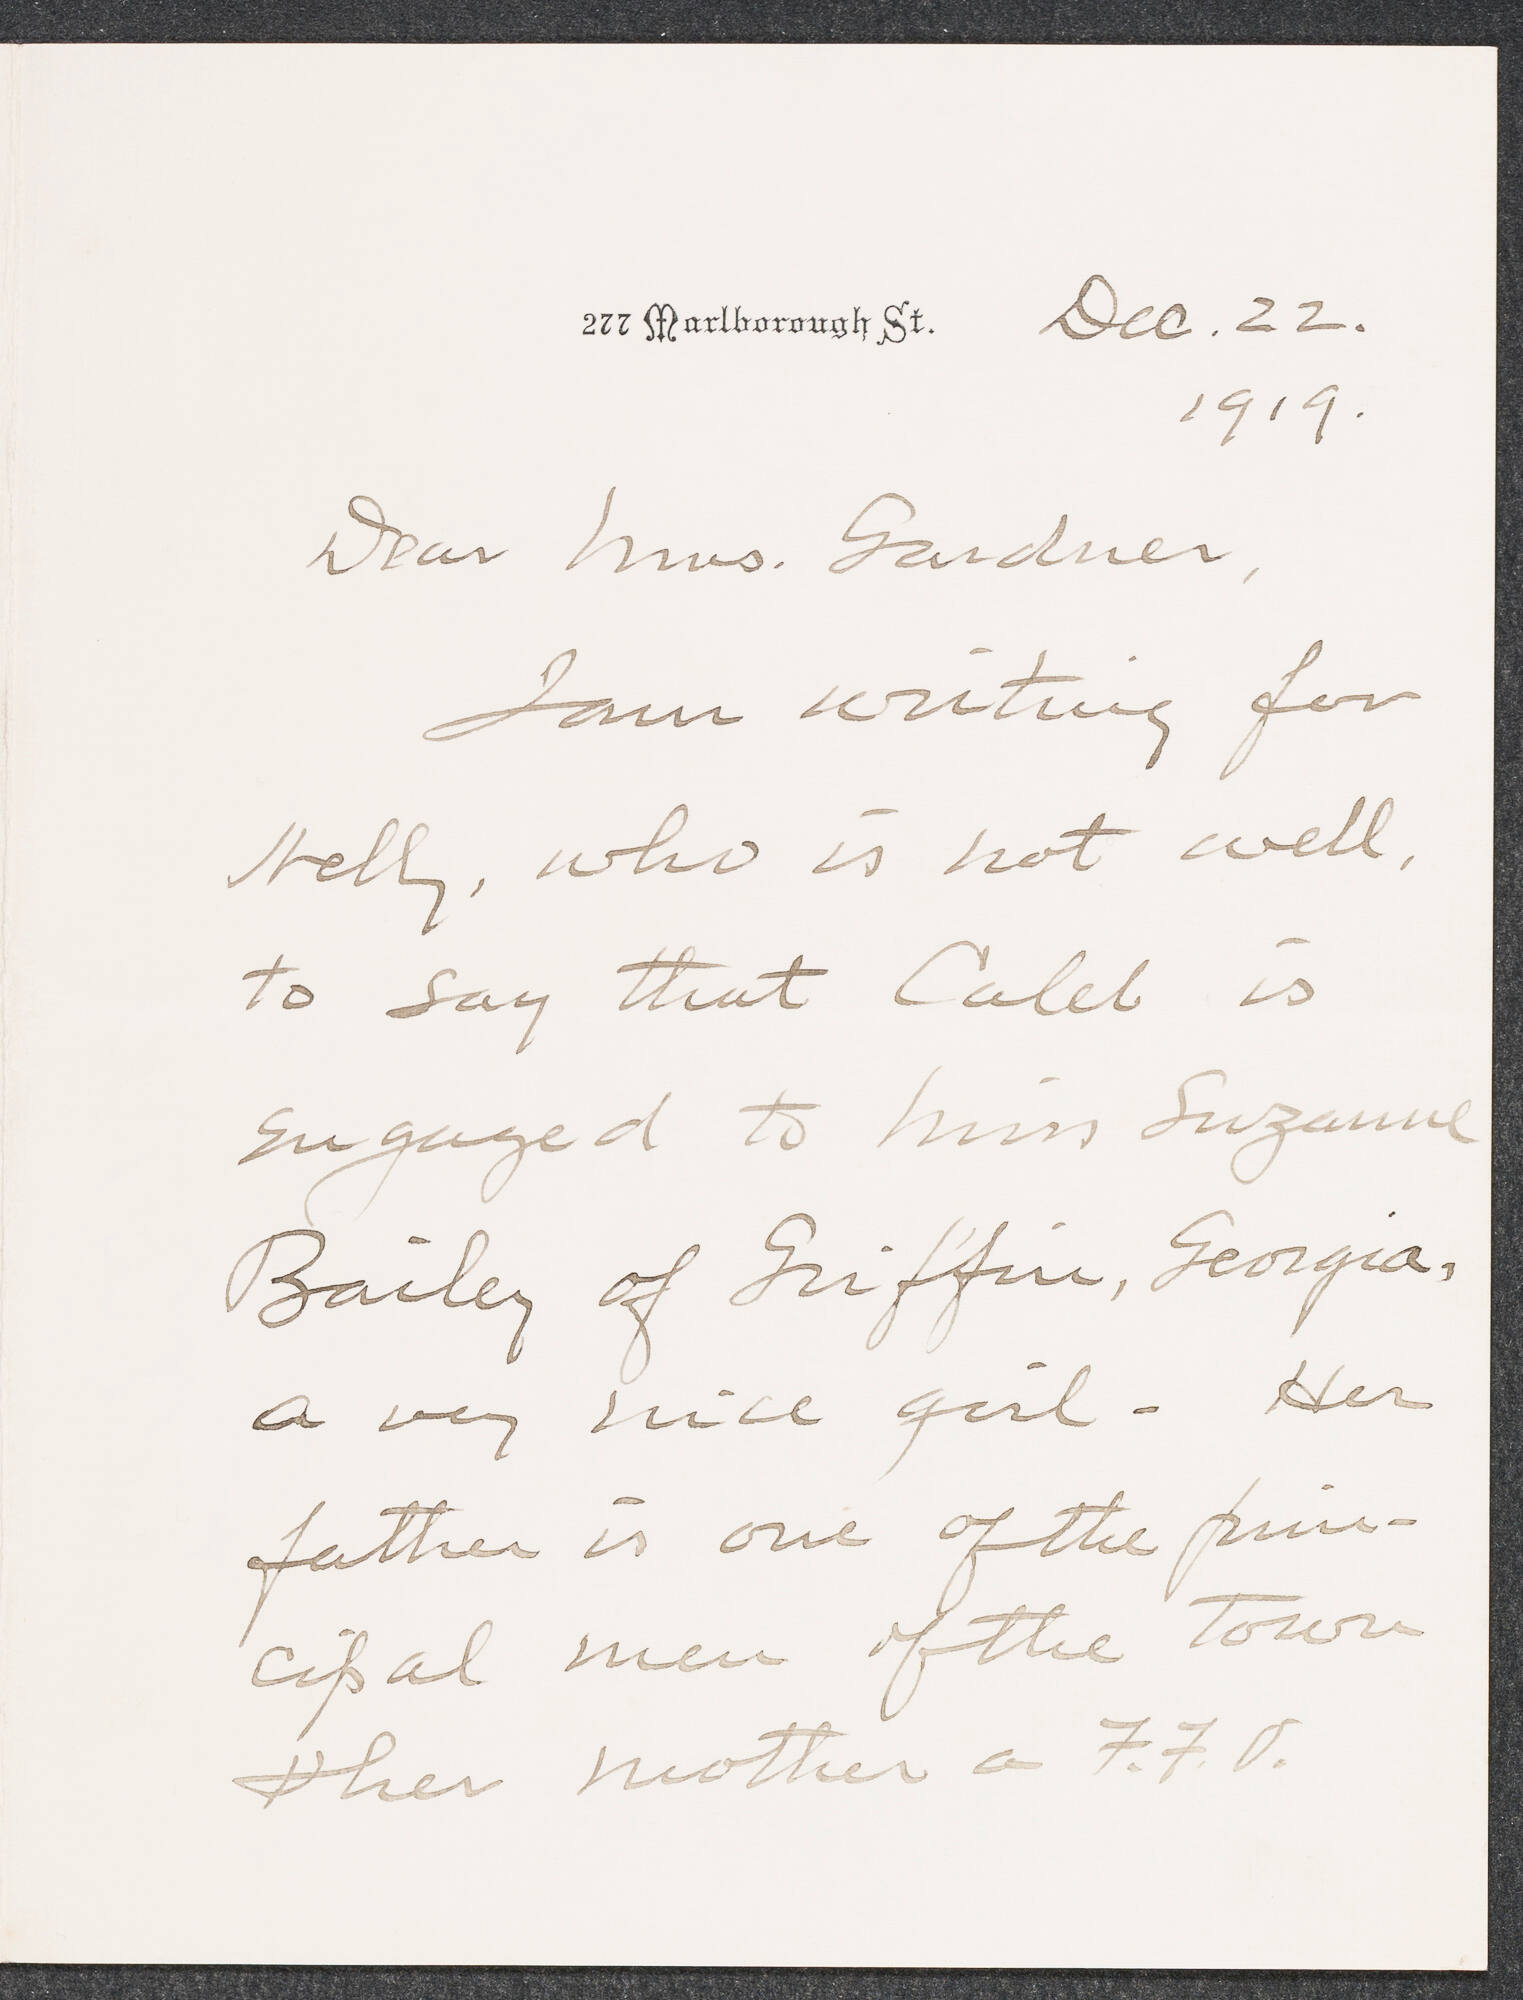 277 Marlborough St. Dec. 22.
1919.
Dear Mrs. Gardner,
I am writing for
Nelly, who is not well,
to say that Caleb is
engaged to Miss Suzanne
Bailey of Griffin, Georgia,
a very nice girl - Her
father is one of the prin-
cipal men of the town
& her mother a F.F.V.